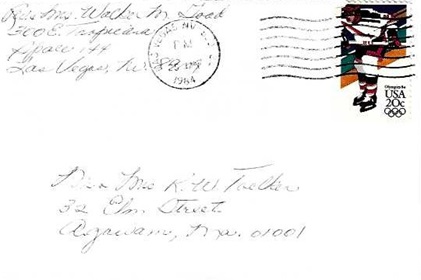 Mrs. Walker M. Todd
300 E. Tropicana
Space 144
Las Vegas, Nev.
PM
1984
Olympics 84
USA
20c
Mrs K. W. Toelken
32 Elm Street
Agawam, Ma. 01001